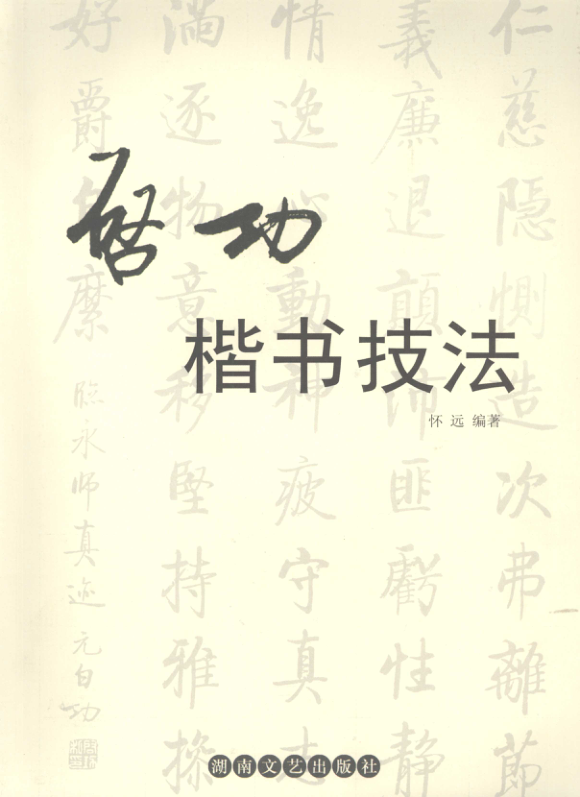 启功
楷书技法
怀远 编著
仁慈隐恻造次弗离節
義廉退顛沛匪虧性静
情逸心動神疲守真志
滿逐物意移堅持雅操
好爵自縻
臨永師真迹 元白功
湖南文艺出版社